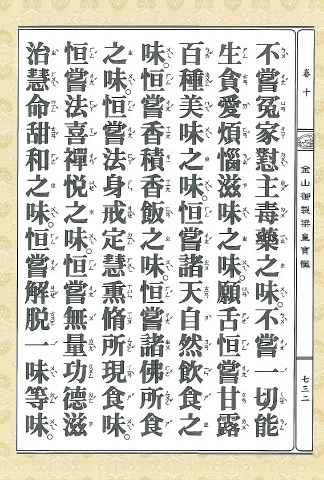 卷十
金山御製梁皇寶懺
七三二
不嘗冤家懟主毒藥之味。不嘗一切能
生貪愛煩惱滋味之味。願舌恒嘗甘露
百種美味之味。恒嘗諸天自然飲食之
味。恒嘗香積香飯之味。恒嘗諸佛所食
之味。恒嘗法身戒定慧熏脩所現食味。
恒嘗法喜禪悅之味。恒嘗無量功德滋
治慧命甜和之味。恒嘗解脫一味等味。